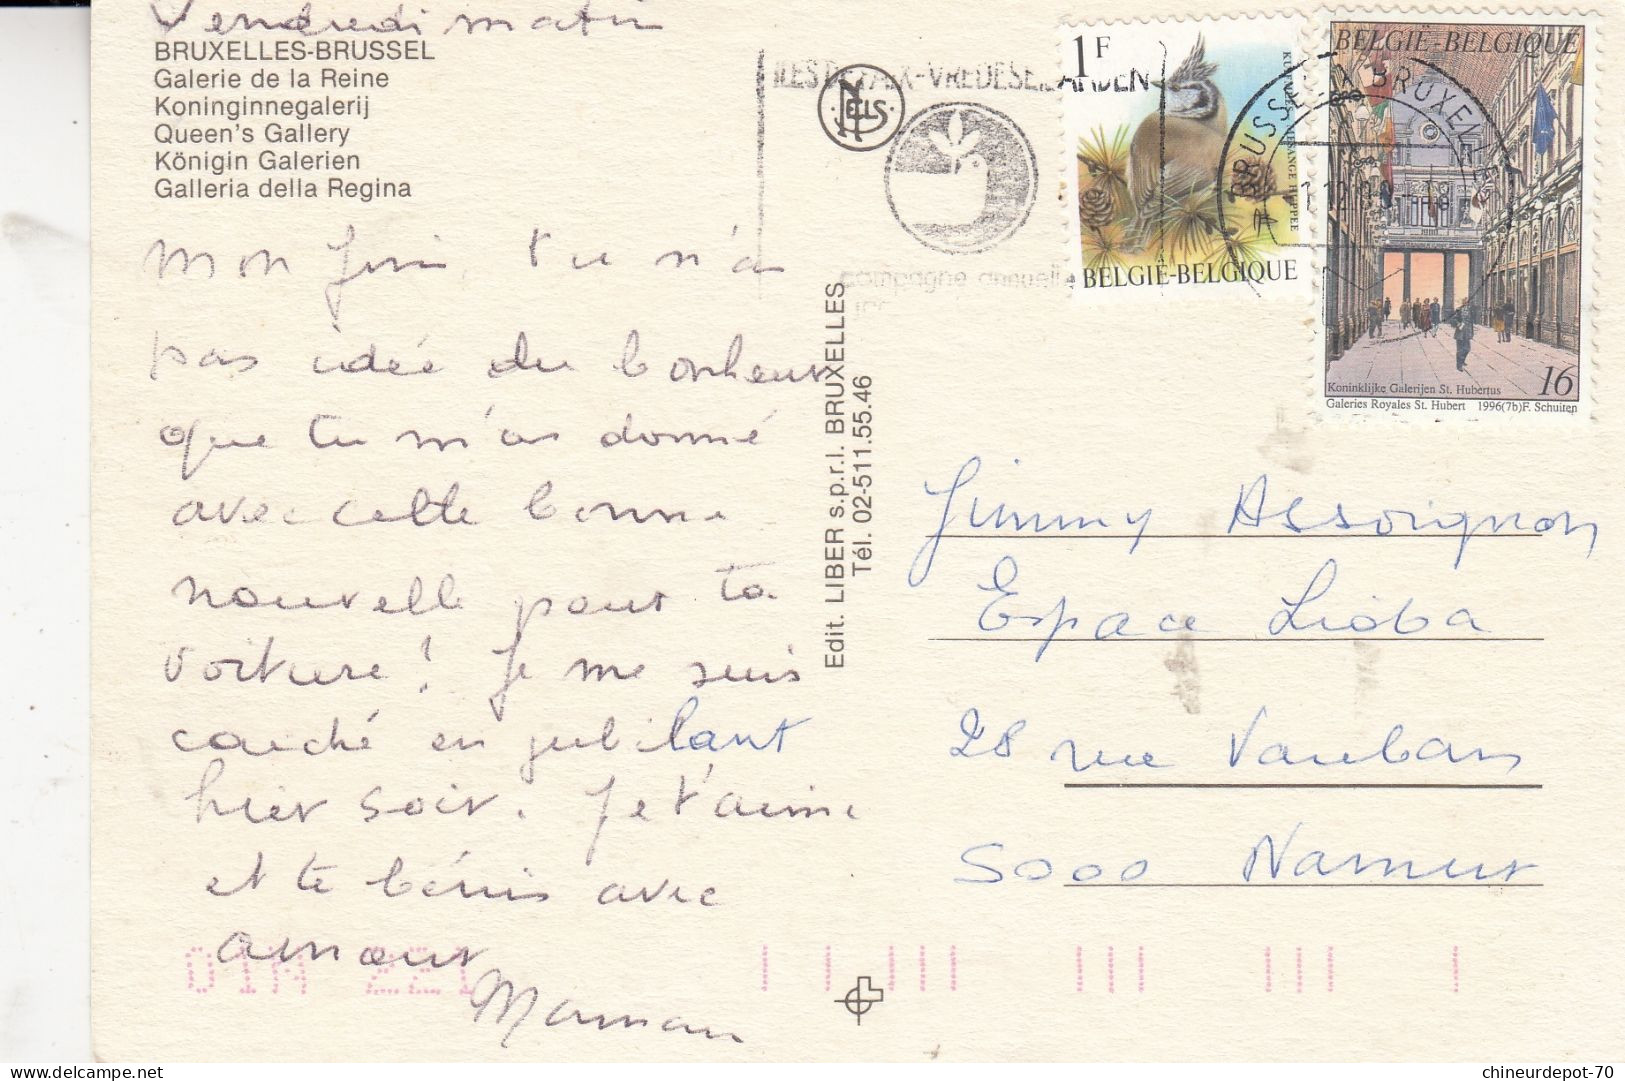 Vendredi matin
BRUXELLES-BRUSSEL
Galerie de la Reine
Koninginnegalerij
Queen's Gallery
Königin Galerien
Galleria della Regina
Mon Jimi, tu n'as
pas idée du bonheur
que tu m'as donné
avec cette bonne
nouvelle pour ta
voiture ! Je me suis
couché en jubilant
hier soir. Je t'aime
et te bénis avec
amour
Maman
Edit. LIBER s.p.r.l. BRUXELLES
Tél. 02-511.55.46
NELS
campagne annuelle
1F
KUIFMEES MESANGE HUPPEE
BELGIË-BELGIQUE
BRUSSEL X BRUXELLES
BELGIË-BELGIQUE
16
Koninklijke Galerijen St. Hubertus
Galeries Royales St. Hubert 1996(7b)F. Schuiten
Jimmy Assoignon
Espace Lioba
28 rue Vauban
5000 Namur
chineurdepot-70